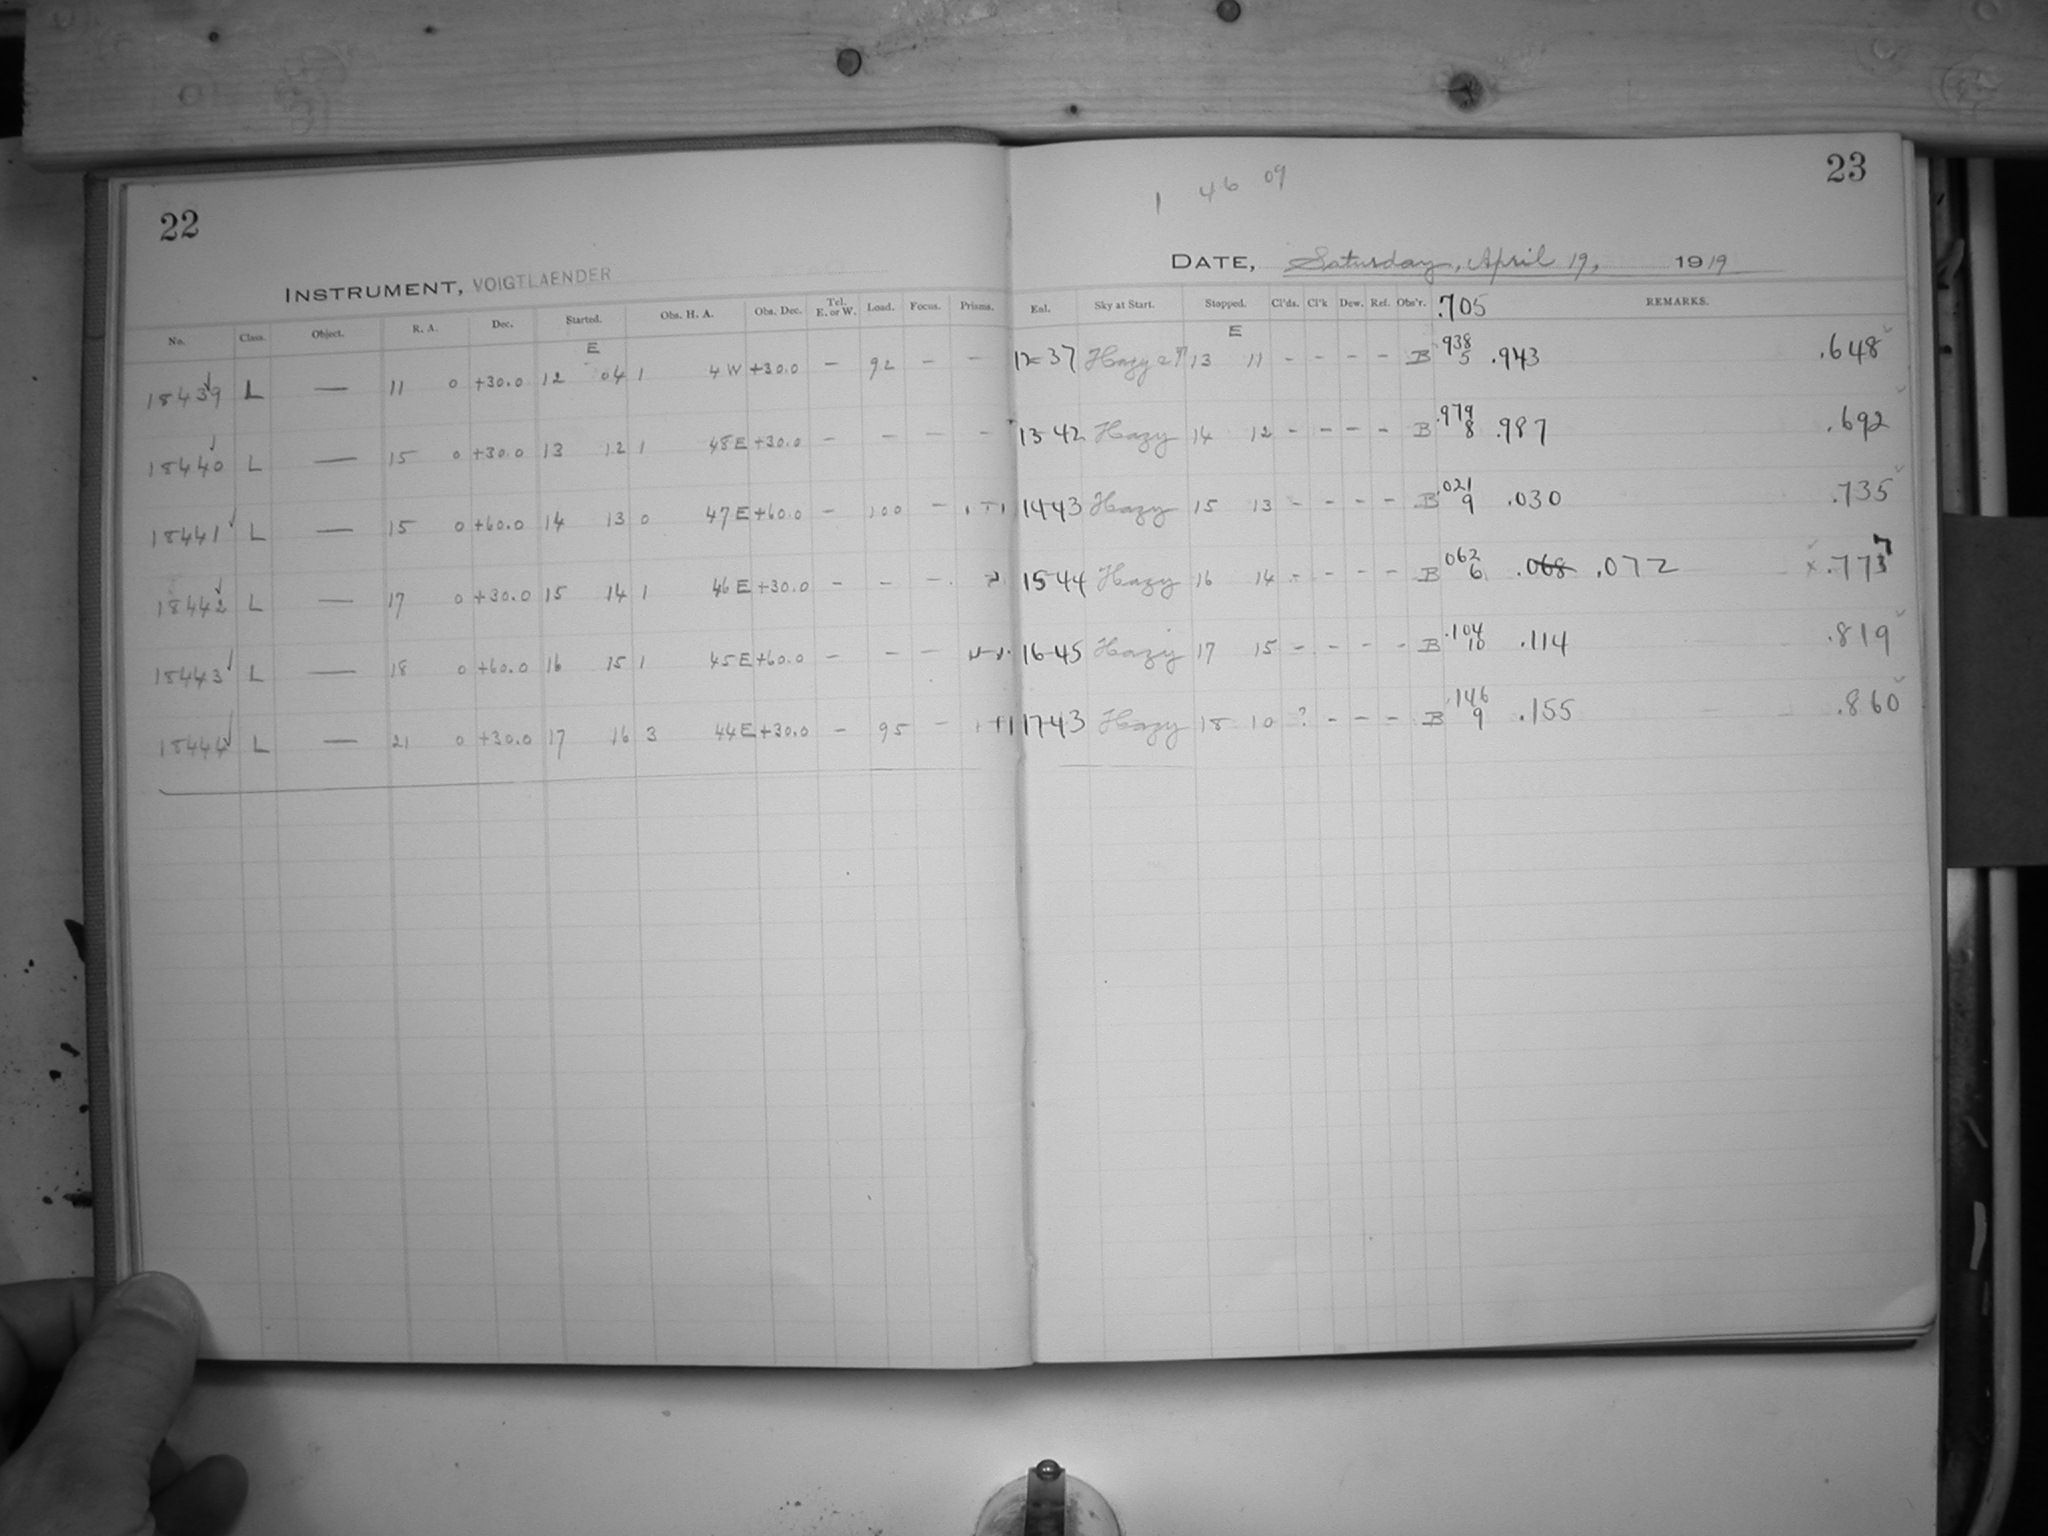 22
INSTRUMENT, VOIGTLAENDER
No. Class. Object. R. A. Dec. Started. Obs. H. A. Obs. Dec. Tel. E. or W. Load. Focus. Prisms.
E
18439 L — 11 0 +30.0 12 04 1 4 W +30.0 – 92 – –
18440 L — 15 0 +30.0 13 12 1 48 E +30.0 – – – –
18441 L — 15 0 +60.0 14 13 0 47 E +60.0 – 100 –
18442 L — 17 0 +30.0 15 14 1 46 E +30.0 – – –
18443 L — 18 0 +60.0 16 15 1 45 E +60.0 – – –
18444 L — 21 0 +30.0 17 16 3 44 E +30.0 – 95 –
23
1 46 09
DATE, Saturday, April 19, 1919
Exl. Sky at Start. Stopped. Cl'ds. Cl'k Dew. Ref. Obs'r. .705 REMARKS.
E
12-37 Hazy 13 11 – – – – B .938 5 .943 .648
13-42 Hazy 14 12 – – – – B .979 8 .987 .692
14-43 Hazy 15 13 – – – – B .021 9 .030 .735
15-44 Hazy 16 14 – – – – B .062 6 .068 .072 x .773 7
16-45 Hazy 17 15 – – – – B .104 10 .114 .819
17-43 Hazy 18 10 ? – – – B .146 9 .155 .860